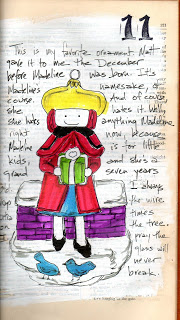 11
This is my favorite ornament. Matt
gave it to me the December
before Madeline was born. It's
Madeline's namesake, of
course. And of course,
she hates it. Well,
she hates anything Madeline
right now, because
Madeline is for little
kids, and she's a
grand seven years
I always
the wire
times
the tree.
pray the
glass will
never
break.